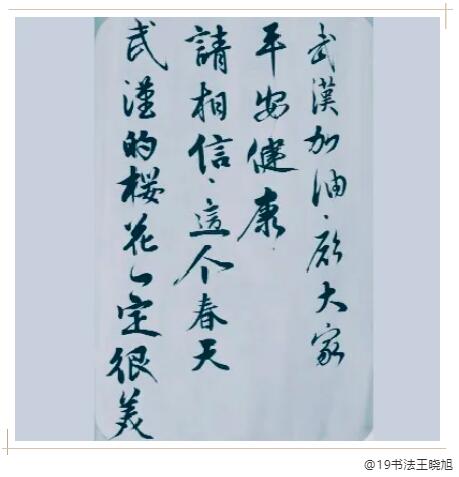 武漢加油、願大家
平安健康
請相信、這个春天
武漢的桜花一定很美
@19书法王晓旭